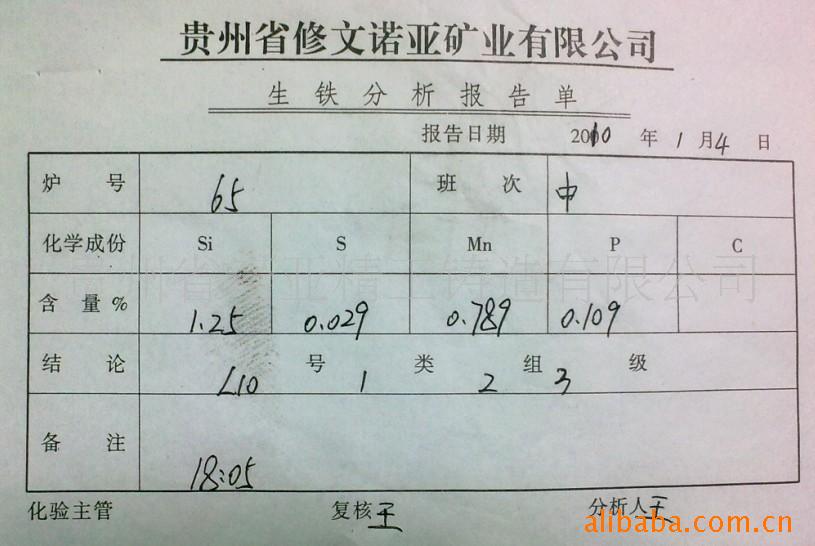 贵州省修文诺亚矿业有限公司
生铁分析报告单
报告日期 2010 年 1 月 4 日
炉号 65 班次 中
化学成份 Si S Mn P C
贵州省诺亚精工铸造有限公司
含量% 1.25 0.029 0.789 0.109
结论 L10 号 1 类 2 组 3 级
备注 18:05
化验主管 复核 王 分析人 王
alibaba.com.cn